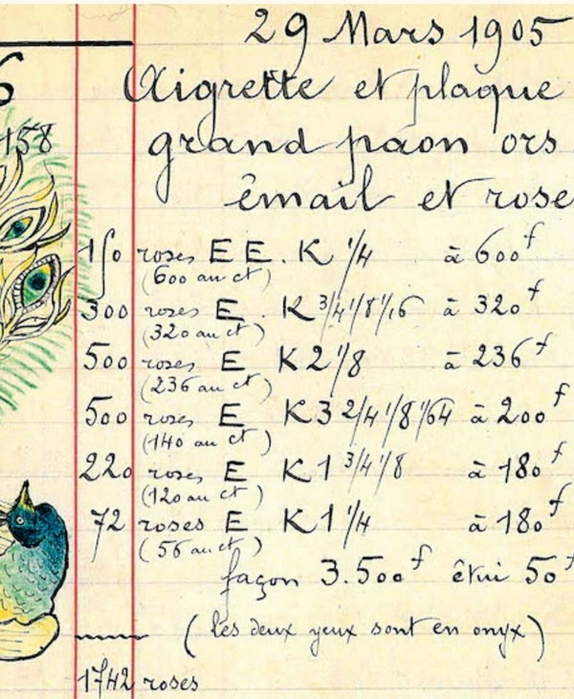 29 Mars 1905
6
Aigrette et plaque
158
grand paon ors
émail et rose
150 roses E E. K 1/4 à 600f
(600 au ct)
300 roses E. K 3/4 1/8 1/16 à 320f
(320 au ct)
500 roses E K 2 1/8 à 236f
(236 au ct)
500 roses E K 3 2/4 1/8 1/64 à 200f
(140 au ct)
220 roses E K 1 3/4 1/8 à 180f
(120 au ct)
72 roses E K 1 1/4 à 180f
(56 au ct)
façon 3.500f étui 50f
(les deux yeux sont en onyx)
1742 roses